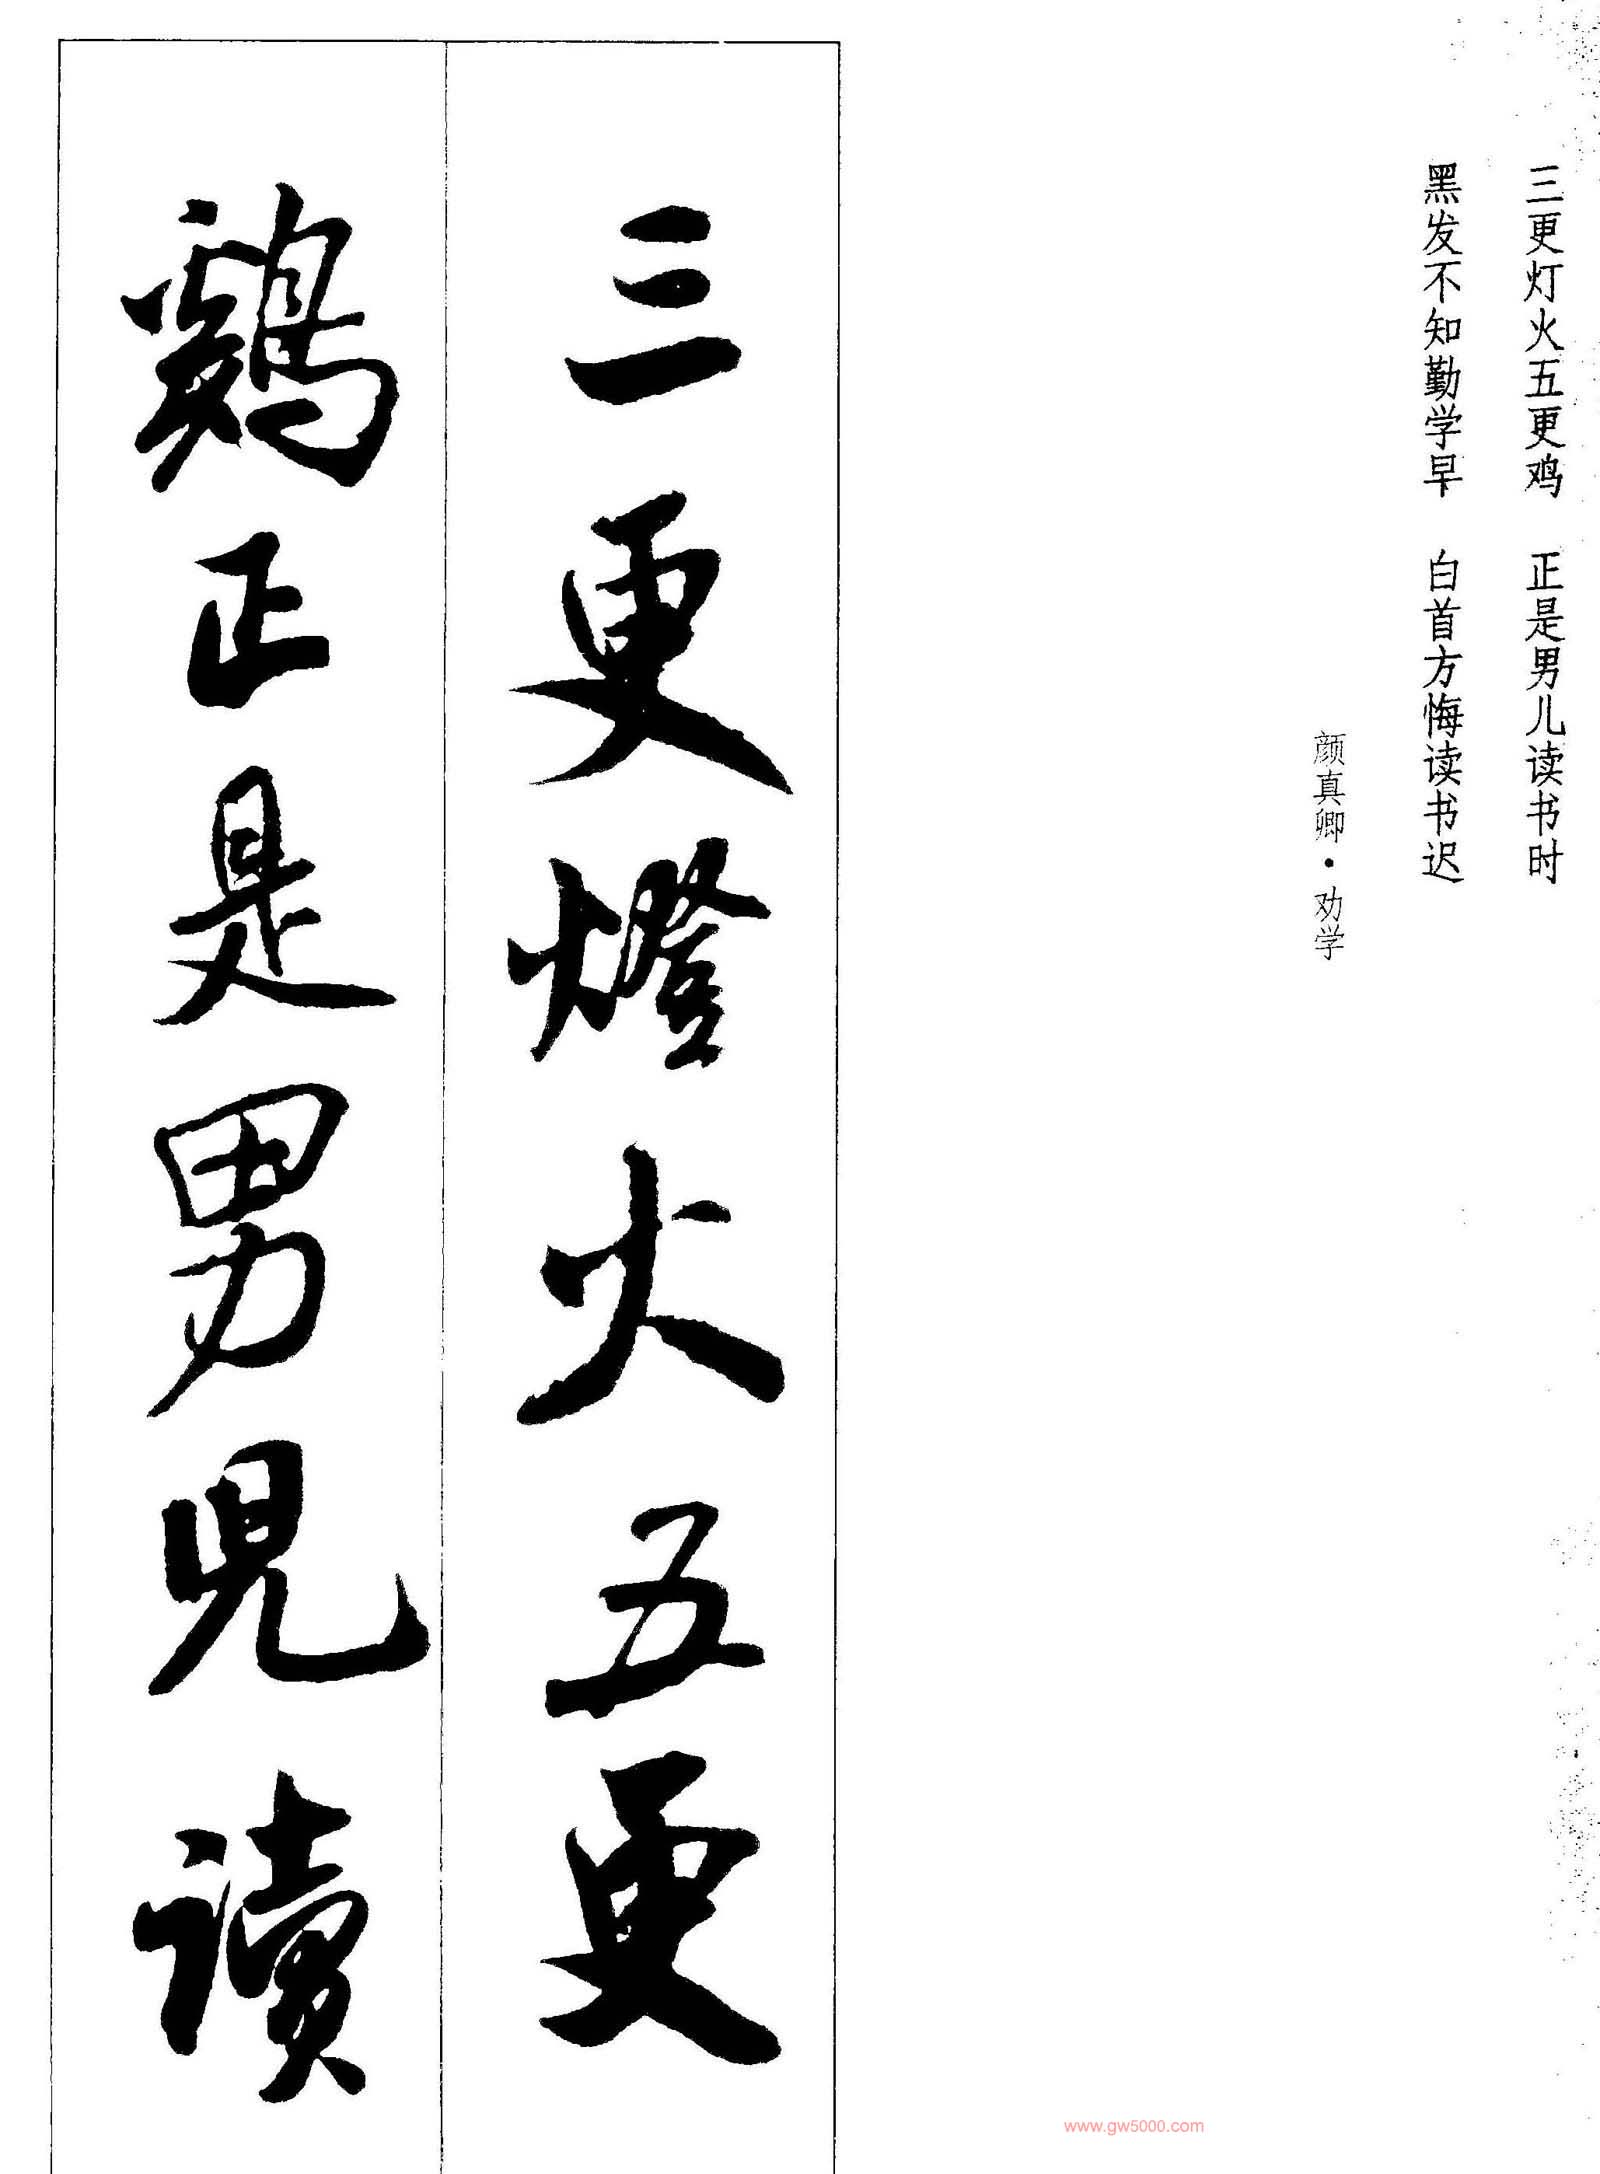 三更灯火五更鸡　正是男儿读书时
黑发不知勤学早　白首方悔读书迟
颜真卿·劝学
三更燈火五更
鷄正是男兒讀
www.gw5000.com